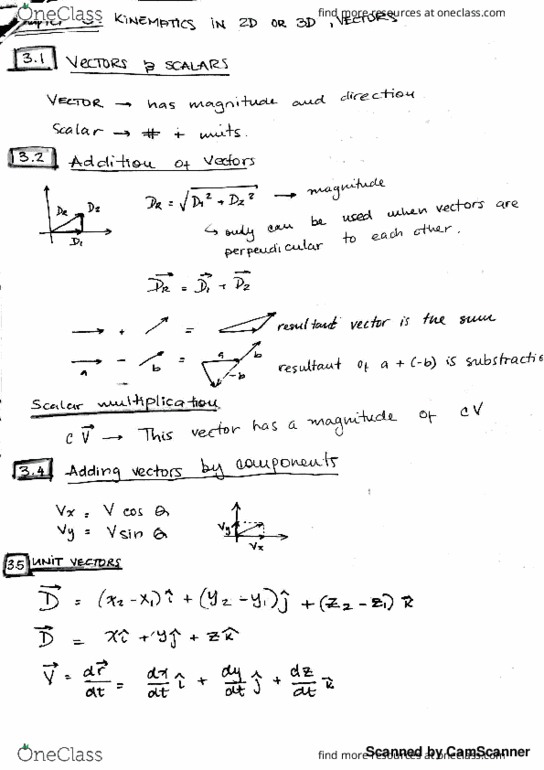 OneClass
find more resources at oneclass.com
KINEMATICS IN 2D OR 3D, VECTORS
3.1 VECTORS & SCALARS
VECTOR → has magnitude and direction
Scalar → # + units.
3.2 Addition of Vectors
DR D2 D1
DR = √D1² + D2² → magnitude
↳ only can be used when vectors are
perpendicular to each other.
DR = D1 + D2
+ = resultant vector is the sum
a − b = a b −b resultant of a + (-b) is substractio
Scalar multiplication
c V → This vector has a magnitude of cV
3.4 Adding vectors by components
Vx = V cos θ
Vy = V sin θ
Vy Vx
3.5 UNIT VECTORS
D = (x2 - x1) î + (y2 - y1) ĵ + (z2 - z1) k̂
D = xî + yĵ + zk̂
V = dr/dt = dx/dt î + dy/dt ĵ + dz/dt k̂
OneClass
find more resources at oneclass.com
Scanned by CamScanner